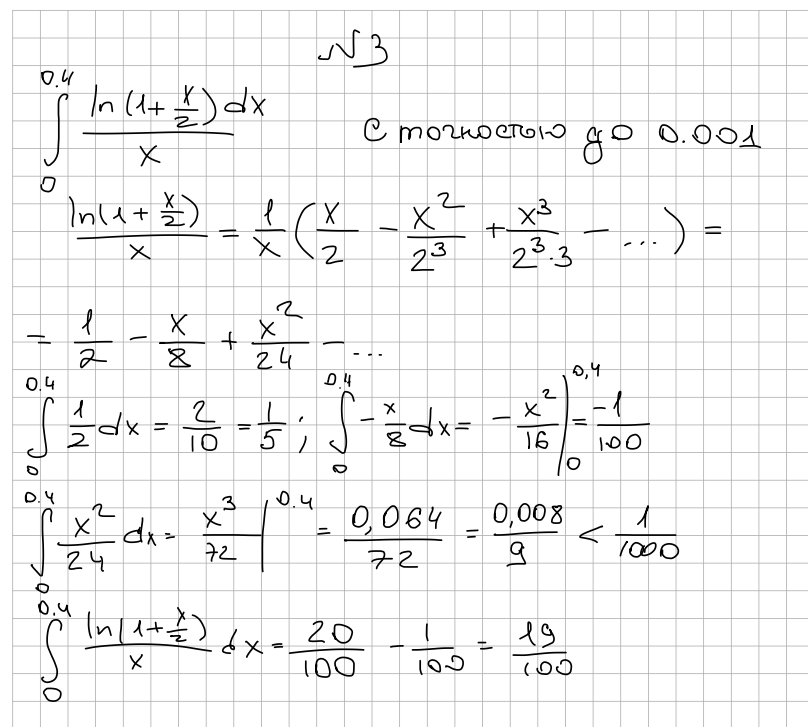 №3
∫₀^0.4 ln(1+x/2)dx / x с точностью до 0.001
ln(1+x/2)/x = 1/x (x/2 - x²/2³ + x³/(2³·3) - ...) =
= 1/2 - x/8 + x²/24 - ...
∫₀^0.4 1/2 dx = 2/10 = 1/5 ; ∫₀^0.4 -x/8 dx = -x²/16 |₀^0,4 = -1/100
∫₀^0.4 x²/24 dx = x³/72 |^0.4 = 0,064/72 = 0,008/9 < 1/1000
∫₀^0.4 ln(1+x/2)/x dx = 20/100 - 1/100 = 19/100